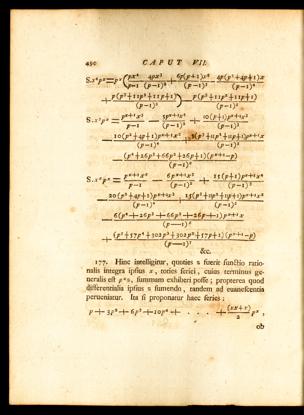 490 CAPUT VII.
S.x⁴pˣ = pˣ ( px⁴/(p—1) — 4px³/(p—1)² + 6p(p+1)x²/(p—1)³ — 4p(p²+4p+1)x/(p—1)⁴
+ p(p³+11p²+11p+1)/(p—1)⁵ ) — p(p³+11p²+11p+1)/(p—1)⁵
S.x⁵pˣ = pˣ⁺¹x⁵/(p—1) — 5pˣ⁺¹x⁴/(p—1)² + 10(p+1)pˣ⁺¹x³/(p—1)³
— 10(p²+4p+1)pˣ⁺¹x²/(p—1)⁴ + 5(p³+11p²+11p+1)pˣ⁺¹x/(p—1)⁵
— (p⁴+26p³+66p²+26p+1)(pˣ⁺¹—p)/(p—1)⁶
S.x⁶pˣ = pˣ⁺¹x⁶/(p—1) — 6pˣ⁺¹x⁵/(p—1)² + 15(p+1)pˣ⁺¹x⁴/(p—1)³
— 20(p²+4p+1)pˣ⁺¹x³/(p—1)⁴ + 15(p³+11p²+11p+1)pˣ⁺¹x²/(p—1)⁵
— 6(p⁴+26p³+66p²+26p+1)pˣ⁺¹x/(p—1)⁶
+ (p⁵+57p⁴+302p³+302p²+57p+1)(pˣ⁺¹—p)/(p—1)⁷
&c.
177. Hinc intelligitur, quoties s fuerit functio ratio-
nalis integra ipsius x, toties seriei, cuius terminus ge-
neralis est pˣs, summam exhiberi posse; propterea quod
differentialia ipsius s sumendo, tandem ad euanescentia
perueniatur. Ita si proponatur haec series;
p + 3p² + 6p³ + 10p⁴ + . . . . + (xx+x)/2 pˣ,
ob